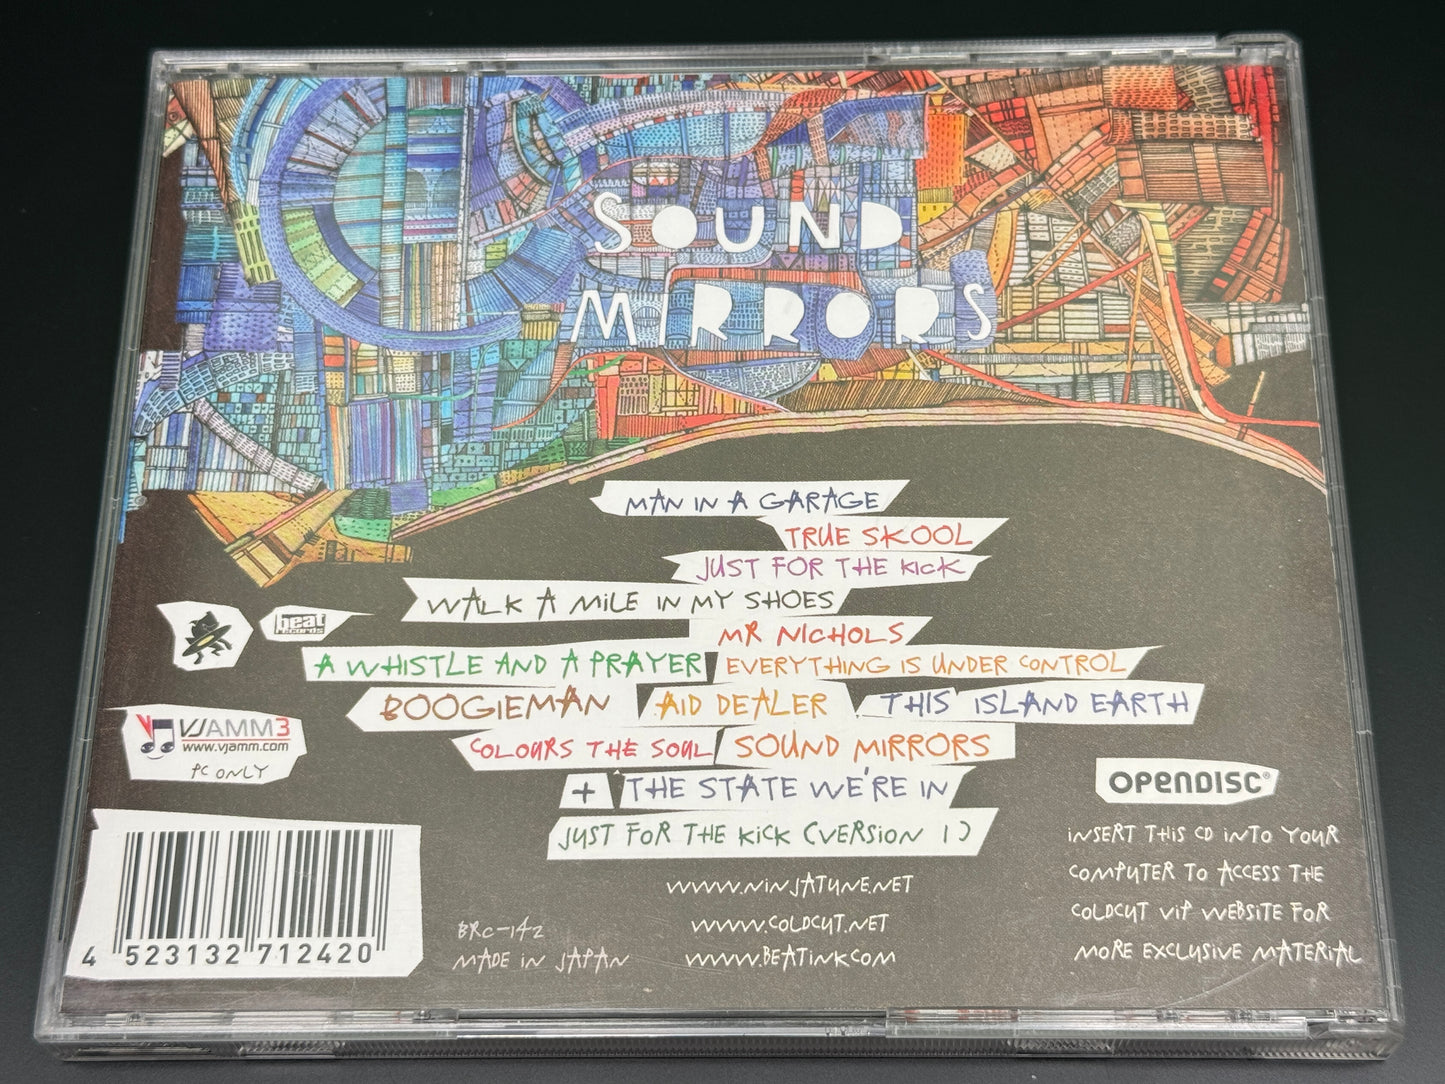 SOUND
MIRRORS
MAN IN A GARAGE
TRUE SKOOL
JUST FOR THE KICK
WALK A MILE IN MY SHOES
MR NICHOLS
A WHISTLE AND A PRAYER EVERYTHING IS UNDER CONTROL
BOOGIEMAN AID DEALER THIS ISLAND EARTH
COLOURS THE SOUL SOUND MIRRORS
+ THE STATE WE'RE IN
JUST FOR THE KICK (VERSION 1)
beat
records
VJAMM3
www.vjamm.com
PC ONLY
OPENDISC®
INSERT THIS CD INTO YOUR
COMPUTER TO ACCESS THE
COLDCUT VIP WEBSITE FOR
MORE EXCLUSIVE MATERIAL
WWW.NINJATUNE.NET
WWW.COLDCUT.NET
WWW.BEATINK.COM
BRC-142
MADE IN JAPAN
4 523132 712420